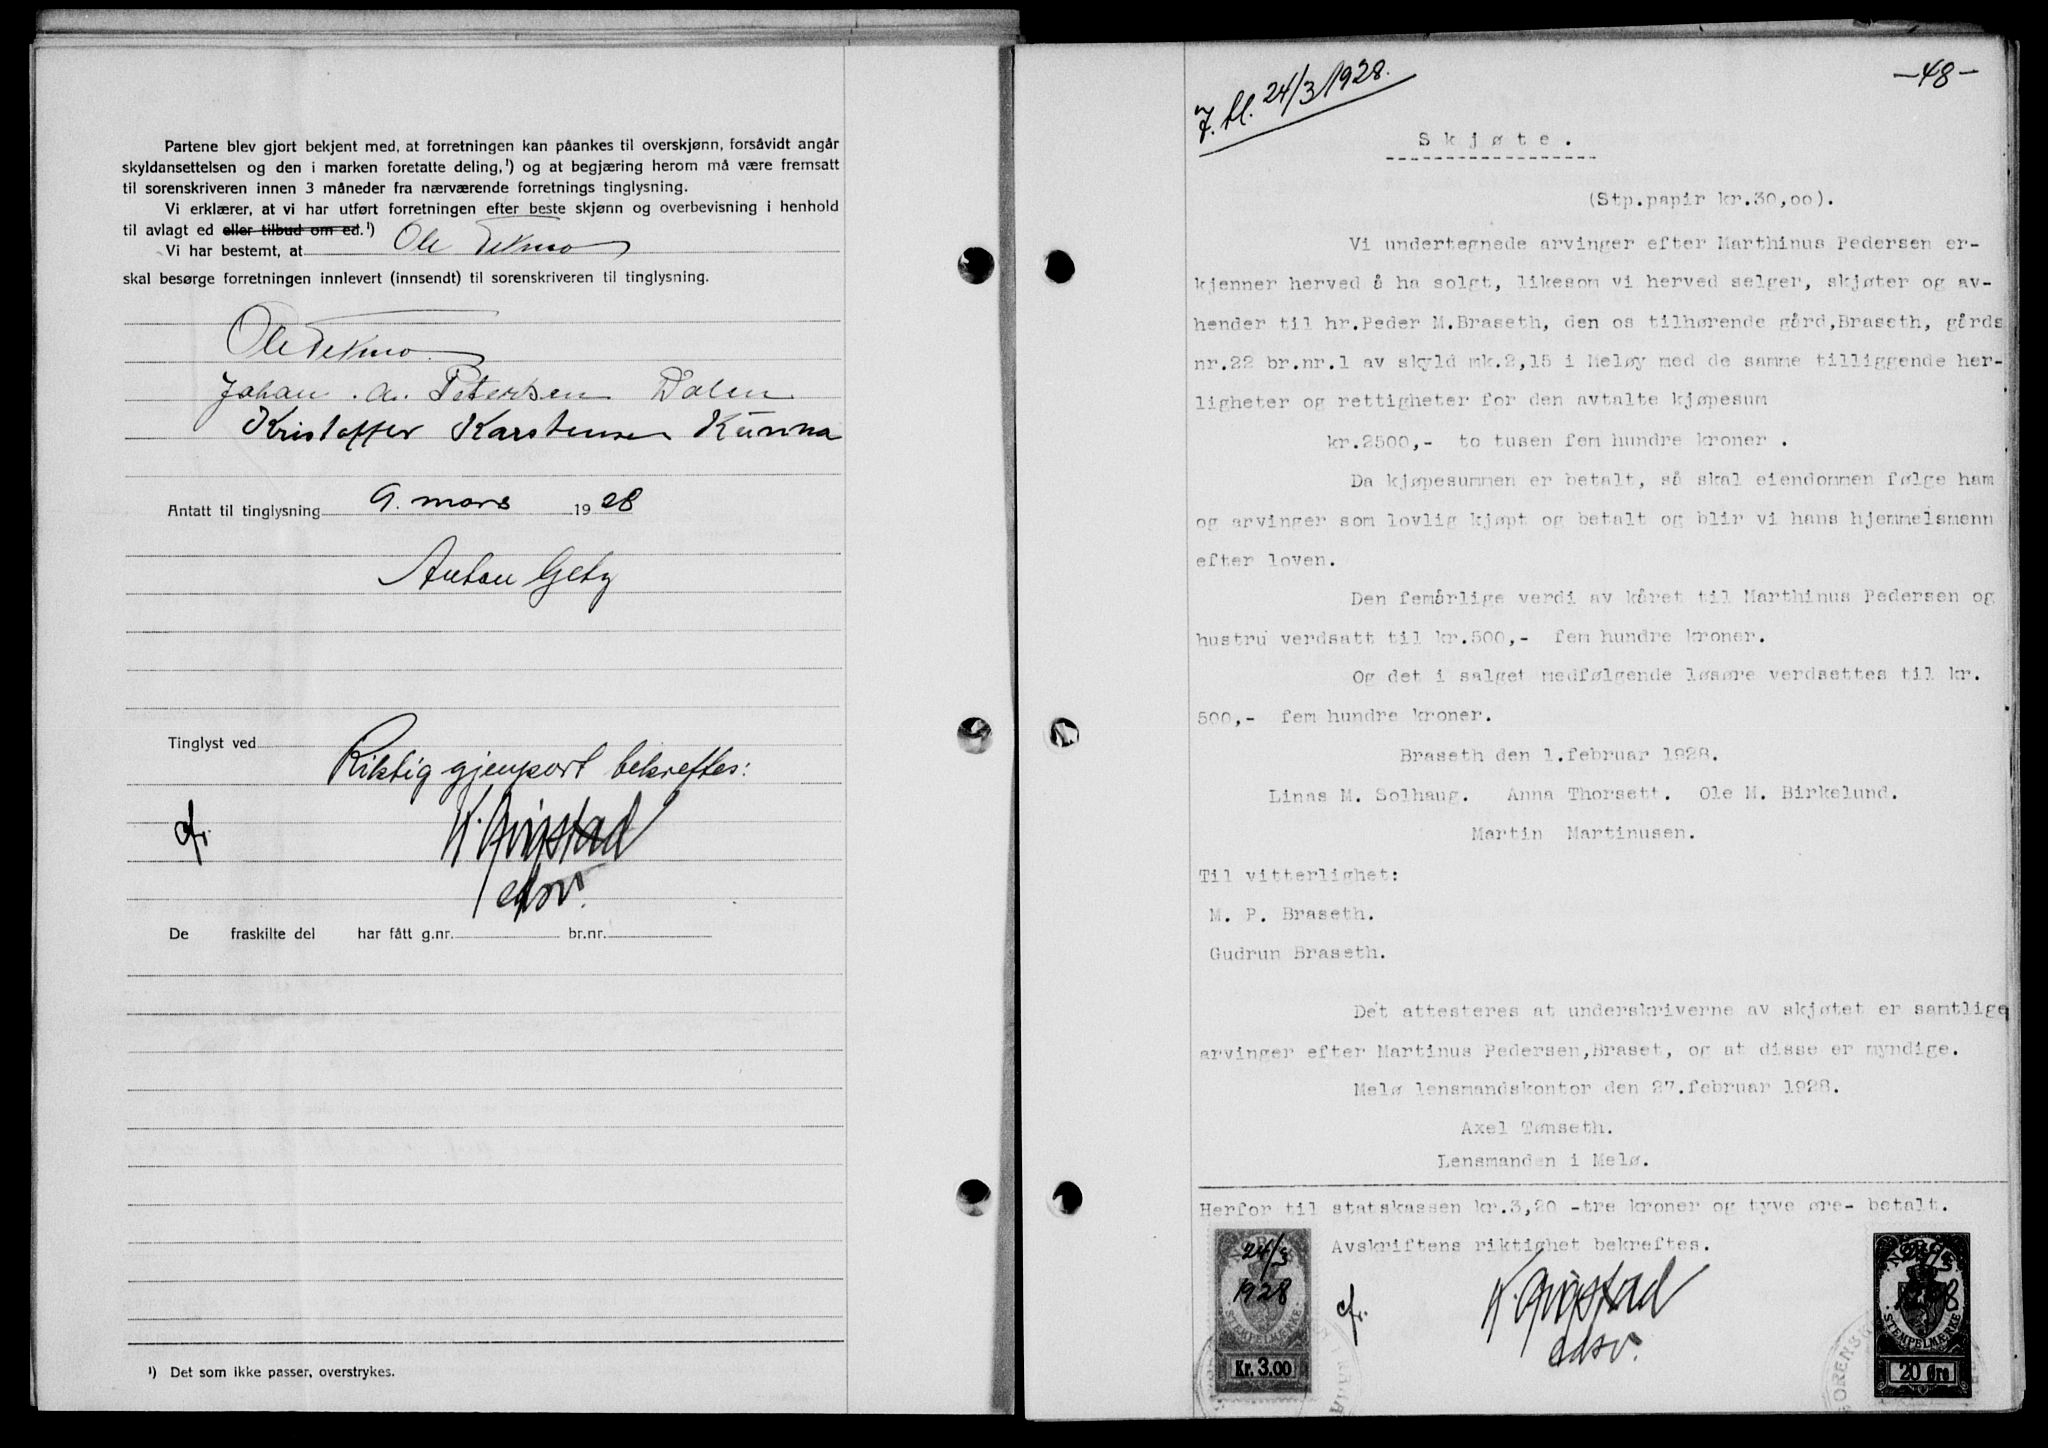 Partene blev gjort bekjent med, at forretningen kan påankes til overskjønn, forsåvidt angår
skyldansettelsen og den i marken foretatte deling,¹) og at begjæring herom må være fremsatt
til sorenskriveren innen 3 måneder fra nærværende forretnings tinglysning.
Vi erklærer, at vi har utført forretningen efter beste skjønn og overbevisning i henhold
til avlagt ed eller tilbud om ed.¹)
Vi har bestemt, at Ole Teksmo
skal besørge forretningen innlevert (innsendt) til sorenskriveren til tinglysning.
Ole Teksmo.
Johan. A. Petersen Dalen
Kristoffer Karstensen Kunna
Antatt til tinglysning 9. mars 1928
Anton Getz
Tinglyst ved
Riktig gjenpart bekreftes:
cfr.
edsv.
De fraskilte del har fått g.nr. br.nr.
¹) Det som ikke passer, overstrykes.
-48-
24/3 1928.
Skjøte.
(Stp.papir kr.30,00).
Vi undertegnede arvinger efter Marthinus Pedersen er-
kjenner herved å ha solgt, likesom vi herved selger, skjøter og av-
hender til hr.Peder M.Braseth, den os tilhørende gård,Braseth, gårds
nr.22 br.nr.1 av skyld mk.2,15 i Meløy med de samme tilliggende her-
ligheter og rettigheter for den avtalte kjøpesum
kr.2500,- to tusen fem hundre kroner .
Da kjøpesummen er betalt, så skal eiendommen følge ham
og arvinger som lovlig kjøpt og betalt og blir vi hans hjemmelsmenn
efter loven.
Den femårlige verdi av kåret til Marthinus Pedersen og
hustru verdsatt til kr.500,- fem hundre kroner.
Og det i salget medfølgende løsøre verdsettes til kr.
500,- fem hundre kroner.
Braseth den 1.februar 1928.
Linas M. Solhaug. Anna Thorsett. Ole M. Birkelund.
Martin Martinusen.
Til vitterlighet:
M. P. Braseth.
Gudrun Braseth.
Det attesteres at underskriverne av skjøtet er samtlige
arvinger efter Martinus Pedersen,Braset, og at disse er myndige.
Melø lensmandskontor den 27.februar 1928.
Axel Tønseth.
Lensmanden i Melø.
Herfor til statskassen kr.3,20 -tre kroner og tyve øre- betalt.
Avskriftens riktighet bekreftes.
24/3
1928
STEMPELMÆRKE
Kr. 3.00
cfr.
edsv.
NORGE
24/3
1928
STEMPELMÆRKE
20 Øre
SORENSK